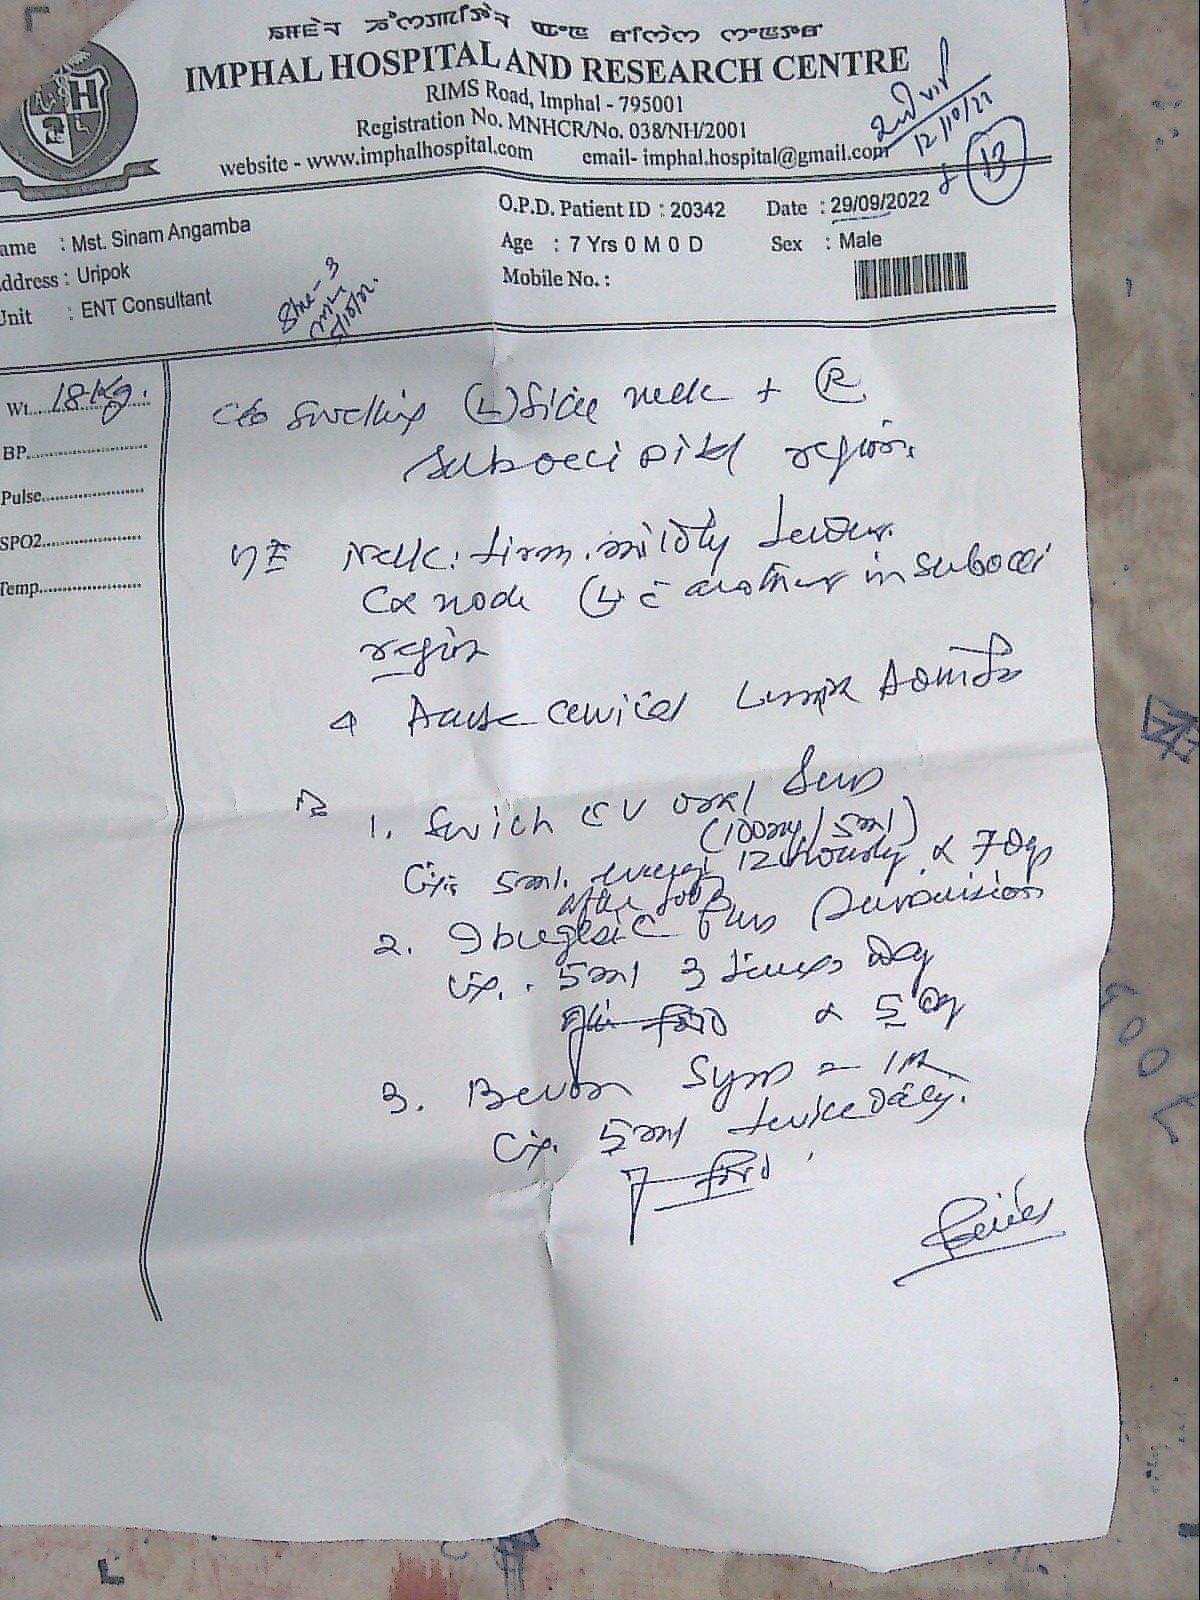 IMPHAL HOSPITAL AND RESEARCH CENTRE
RIMS Road, Imphal - 795001
Registration No. MNHCR/No. 038/NH/2001
website - www.imphalhospital.com email- imphal.hospital@gmail.com
12/10/22
13
ame : Mst. Sinam Angamba
ddress : Uripok
Unit : ENT Consultant
O.P.D. Patient ID : 20342 Date : 29/09/2022
Age : 7 Yrs 0 M 0 D Sex : Male
Mobile No. :
Wt. 18 Kg.
BP.
Pulse
SPO2
Temp.
c/o Swelling (L) Side neck + (R)
suboccipital region.
O/E Neck: firm, mildly tender
Cx node (L) c another in subocci
region
Δ Acute cervical Lymphadenitis
Rx
1. Swich CV oral Susp
(100mg/5ml)
5ml. every 12 hourly x 7 Day
after food
2. Ibugesic Plus Suspension
5ml 3 times Day
x 5 Day
3. Bevon Syrup - 1
5ml twice Daily.